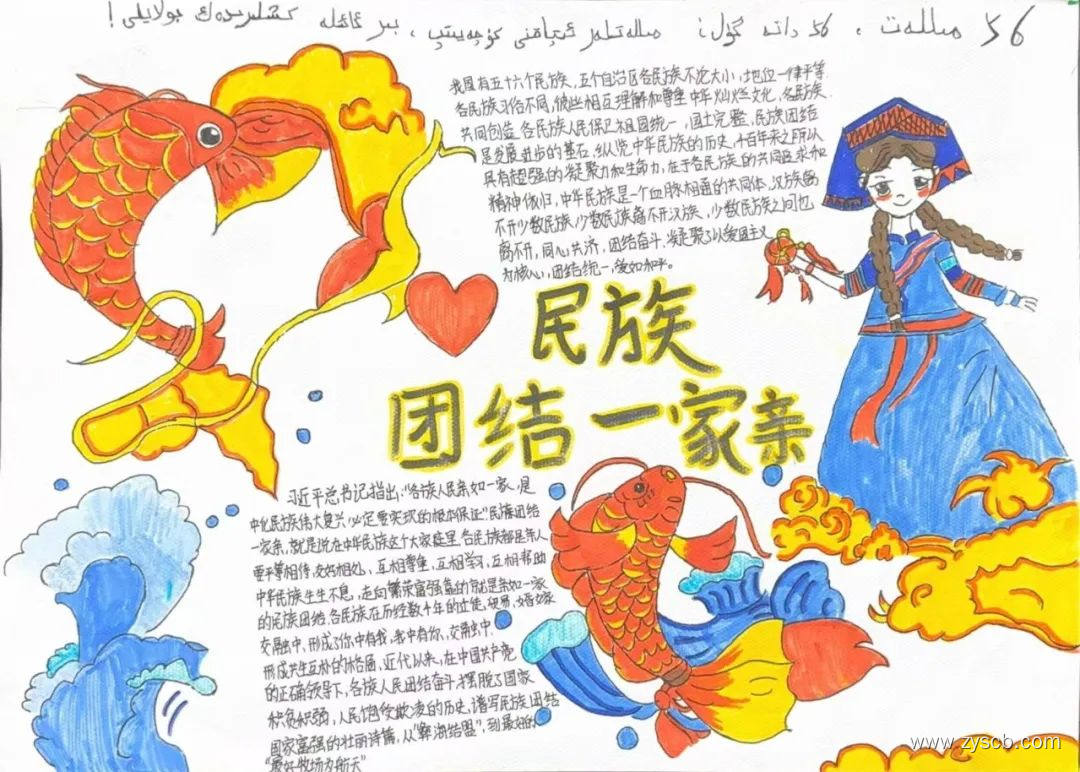 56 مىللەت ، 56 دانە گۈل؛ مىللەتلەر ئىتتىپاقنى كۈچەيتىپ ، بىر ئائىلە كىشىلىرىدەك بولايلى!
我国有五十六个民族，五个自治区各民族不论大小，地位一律平等
各民族习俗不同，彼此相互理解和尊重中华灿烂文化，各民族
共同创造 各民族人民保卫祖国统一，国土完整，民族团结
是发展进步的基石，纵览中华民族的历史，千百年来之所以
具有超强的凝聚力和生命力，在于各民族的共同追求和
精神依归，中华民族是一个血脉相通的共同体，汉族离
不开少数民族，少数民族离不开汉族，少数民族之间也
离不开，同心共济，团结奋斗，凝聚了以爱国主义
为核心，团结统一，爱好和平。
民族
团结一家亲
习近平总书记指出："各族人民亲如一家，是
中化民族伟大复兴必定要实现的根本保证"民族团结
一家亲，就是说在中华民族这个大家庭里 各民族都是亲人
要平等相待，友好相处，互相尊重，互相学习，互相帮助
中华民族生生不息，走向繁荣富强靠的就是亲如一家
的民族团结 各民族在历经数千年的迁徙，贸易，婚嫁
交融中，形成了你中有我，我中有你，交融中
形成共生互补的格局，近代以来，在中国共产党
的正确领导下，各族人民团结奋斗 摆脱了国家
积贫积弱，人民饱受欺凌的历史，谱写民族团结
国家富强的壮丽诗篇，从"彝海结盟"，到最好的
"最好牧场为航天"
www.zyscb.com